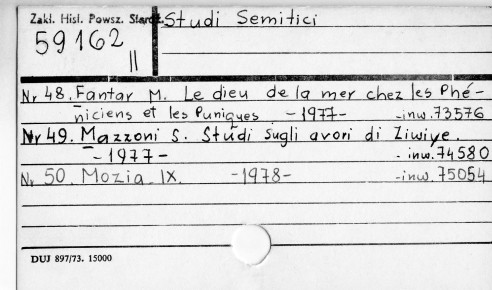 Zakł. Hist. Powsz. Staroż. Studi Semitici
59162
II
Nr 48. Fantar M. Le dieu de la mer chez les Phé-
niciens et les Puniques -1977- -inw. 73576
Nr 49. Mazzoni S. Studi sugli avori di Ziwiye.
-1977- -inw. 74580
Nr 50. Mozia IX. -1978- -inw. 75054
DUJ 897/73. 15000